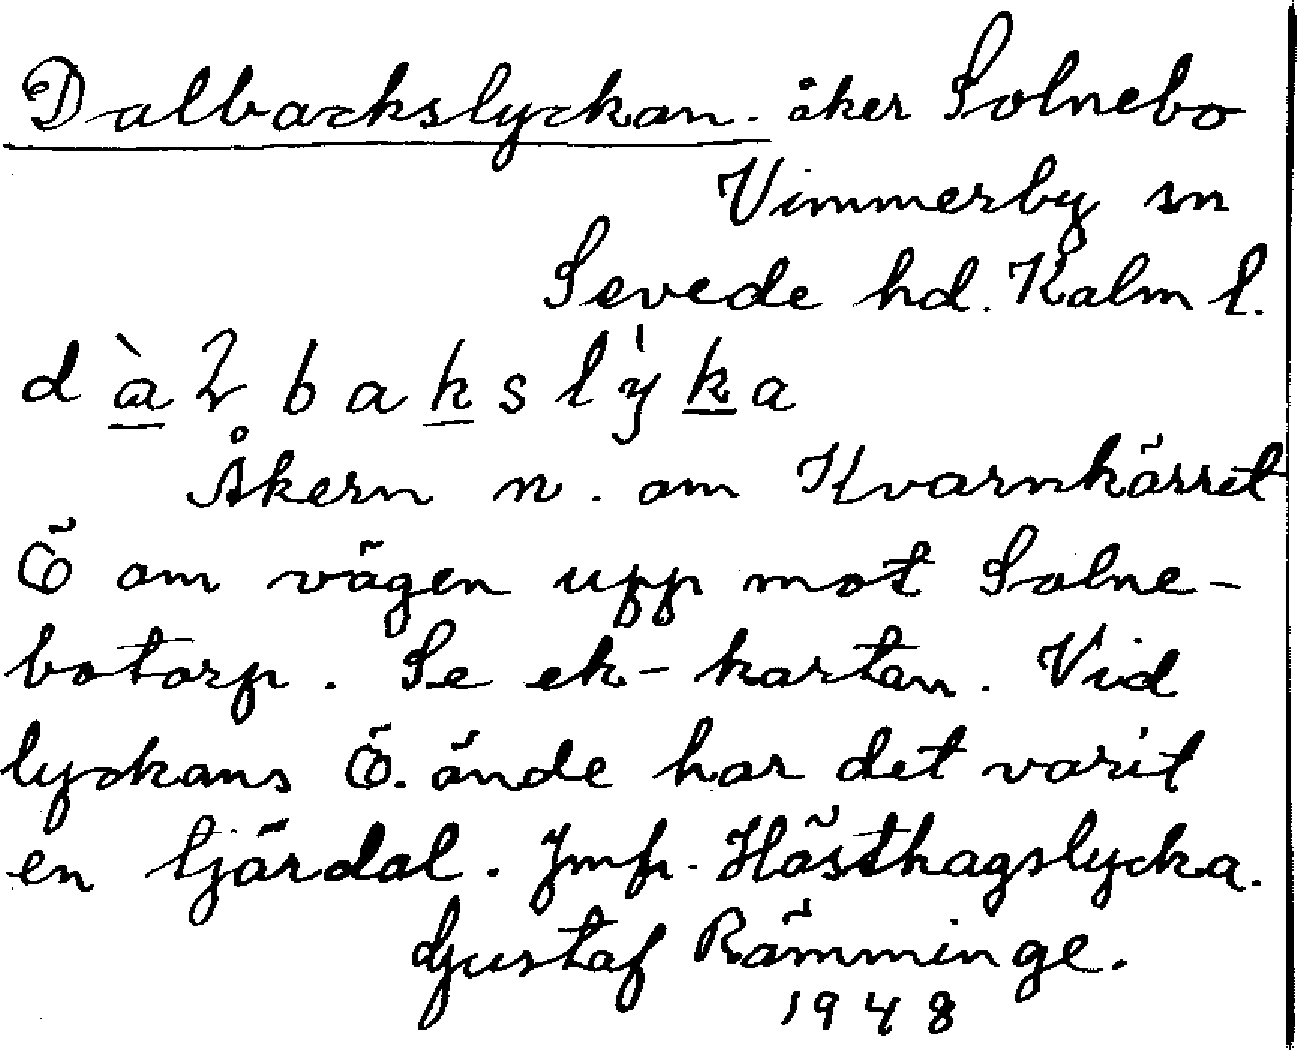 Dalbackslyckan. åker Solnebo
Vimmerby sn
Sevede hd. Kalm l.
dàlbakslýka
Åkern n. om Kvarnkärret
Ö om vägen upp mot Solne-
botorp. Se ek-kartan. Vid
lyckans Ö. ände har det varit
en tjärdal. Jmf. Hästhagslycka.
Gustaf Rämminge.
1948